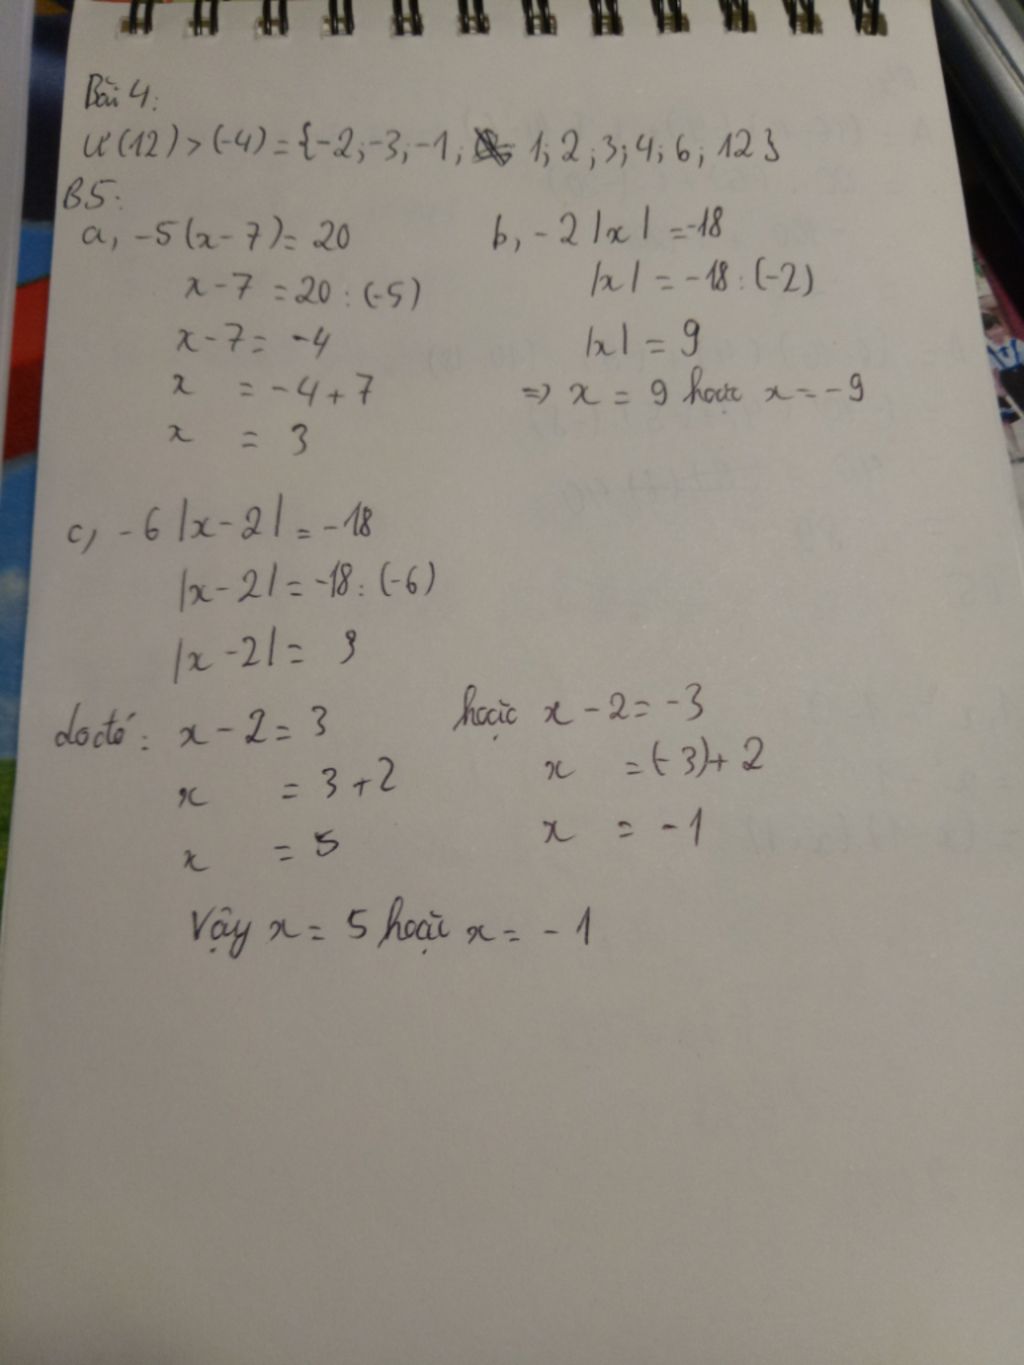 Bài 4:
Ư(12) > (-4) = {-2; -3; -1; 1; 2; 3; 4; 6; 12}
B5:
a, -5(x-7) = 20
x-7 = 20 : (-5)
x-7 = -4
x = -4+7
x = 3
b, -2|x| = -18
|x| = -18 : (-2)
|x| = 9
=> x = 9 hoặc x = -9
c, -6|x-2| = -18
|x-2| = -18 : (-6)
|x-2| = 3
do đó: x-2 = 3
x = 3+2
x = 5
hoặc x-2 = -3
x = (-3)+2
x = -1
Vậy x = 5 hoặc x = -1